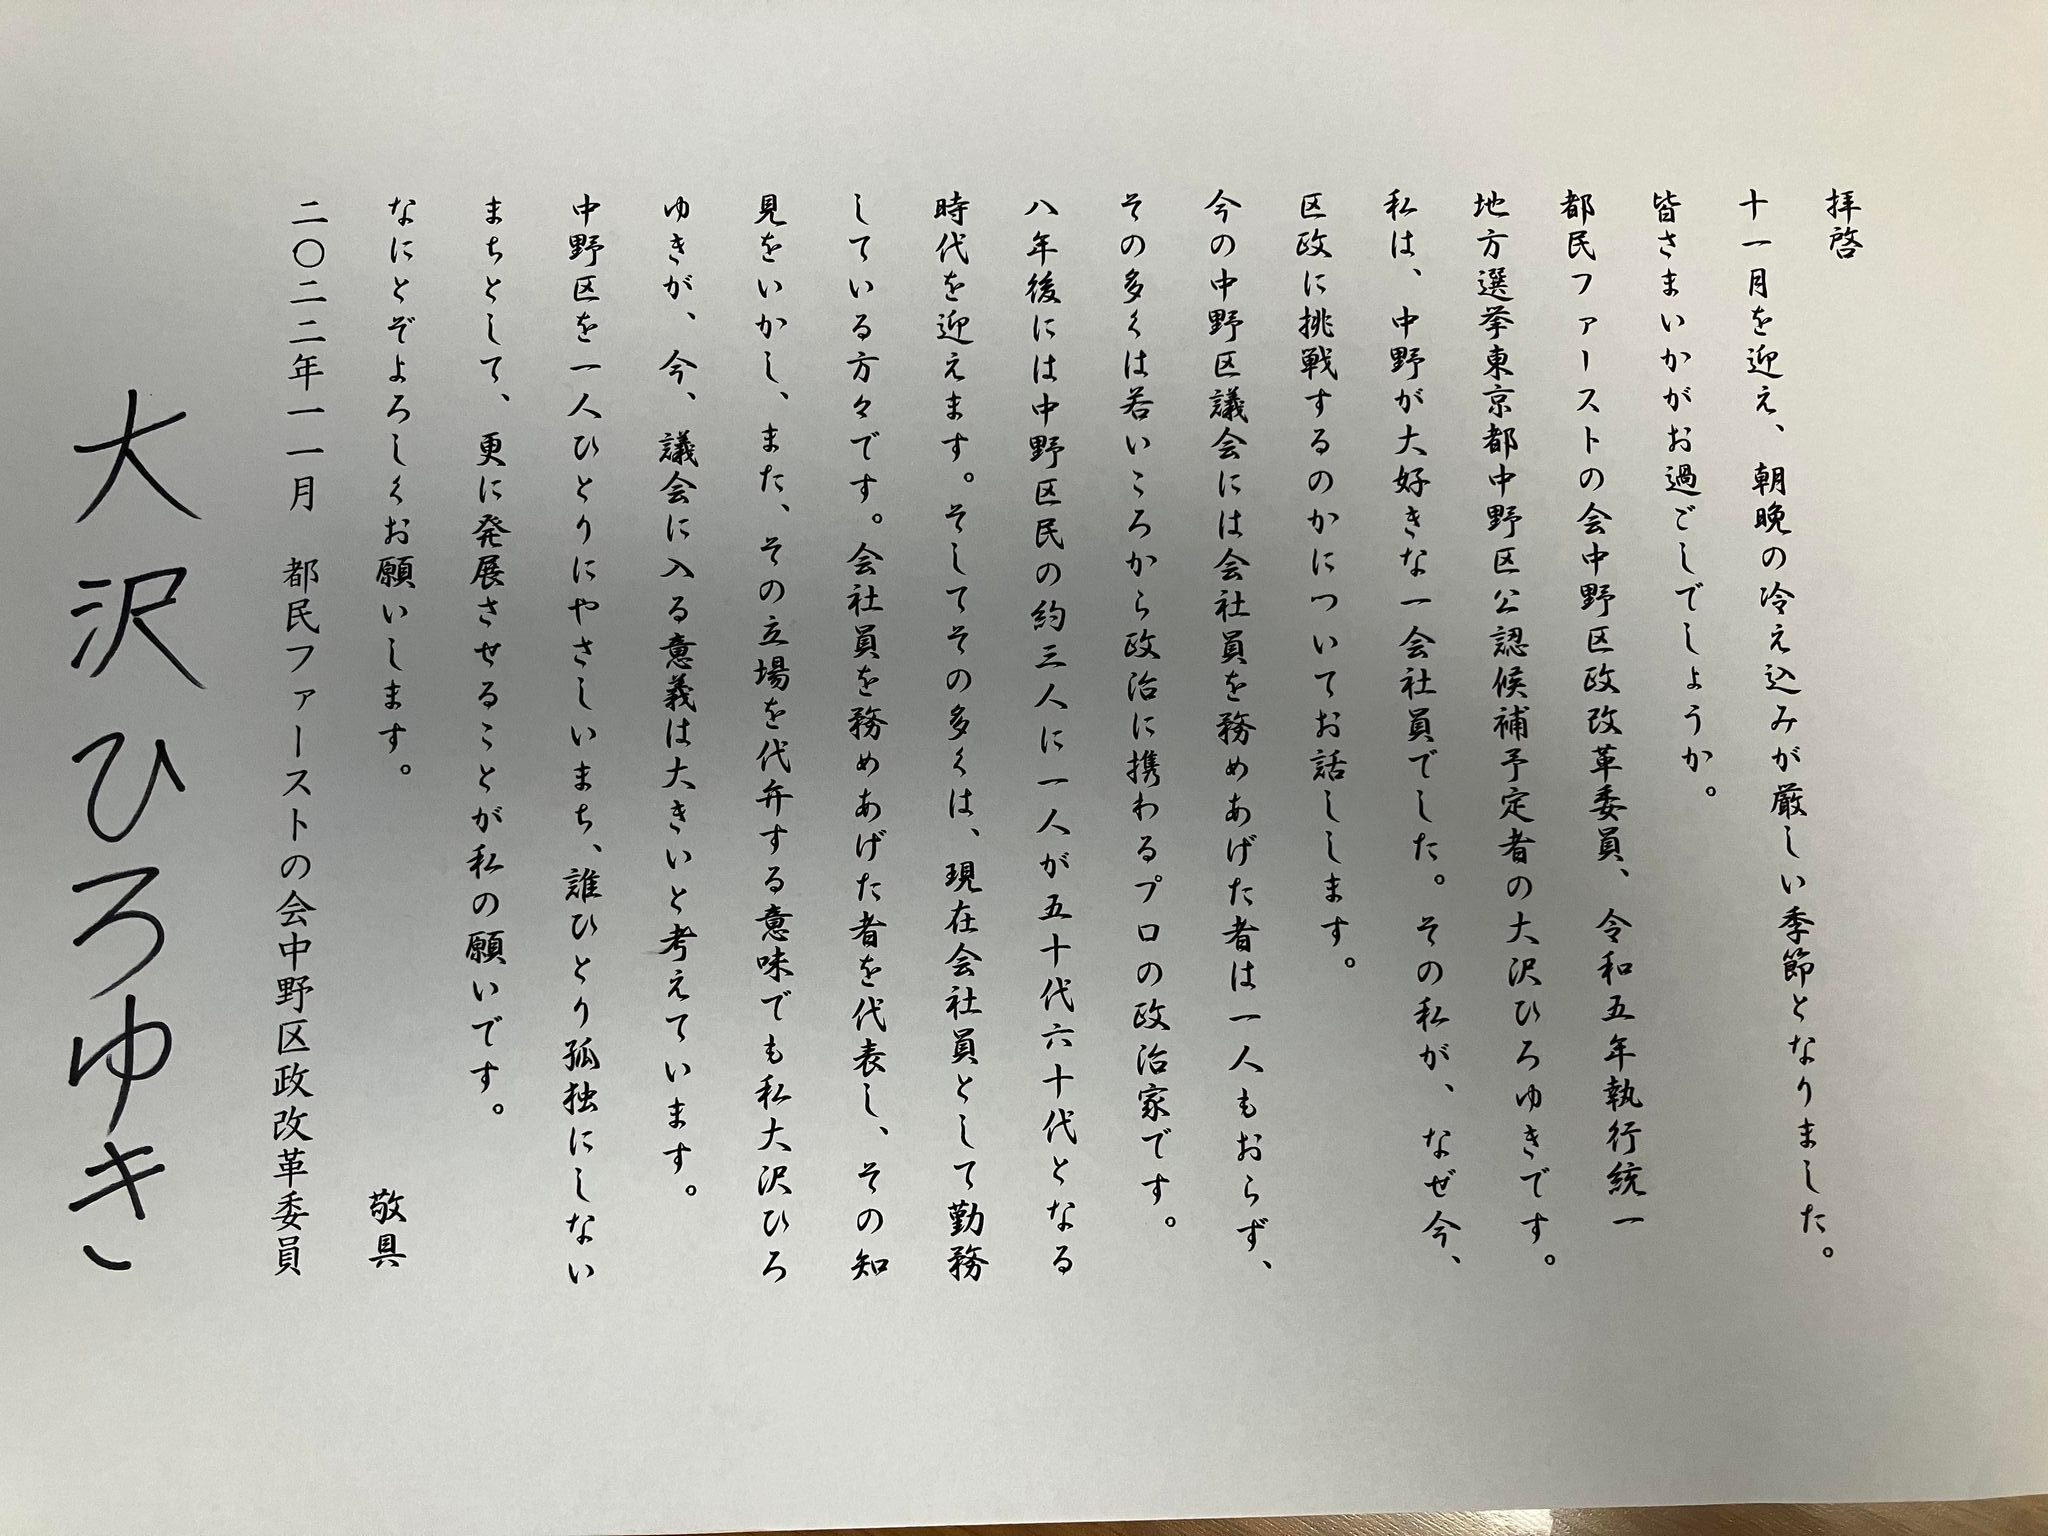 拝啓
十一月を迎え、朝晩の冷え込みが厳しい季節となりました。
皆さまいかがお過ごしでしょうか。
都民ファーストの会中野区政改革委員、令和五年執行統一
地方選挙東京都中野区公認候補予定者の大沢ひろゆきです。
私は、中野が大好きな一会社員でした。その私が、なぜ今、
区政に挑戦するのかについてお話しします。
今の中野区議会には会社員を務めあげた者は一人もおらず、
その多くは若いころから政治に携わるプロの政治家です。
八年後には中野区民の約三人に一人が五十代六十代となる
時代を迎えます。そしてその多くは、現在会社員として勤務
している方々です。会社員を務めあげた者を代表し、その知
見をいかし、また、その立場を代弁する意味でも私大沢ひろ
ゆきが、今、議会に入る意義は大きいと考えています。
中野区を一人ひとりにやさしいまち、誰ひとり孤独にしない
まちとして、更に発展させることが私の願いです。
なにとぞよろしくお願いします。
敬具
二〇二二年一一月　都民ファーストの会中野区政改革委員
大沢ひろゆき